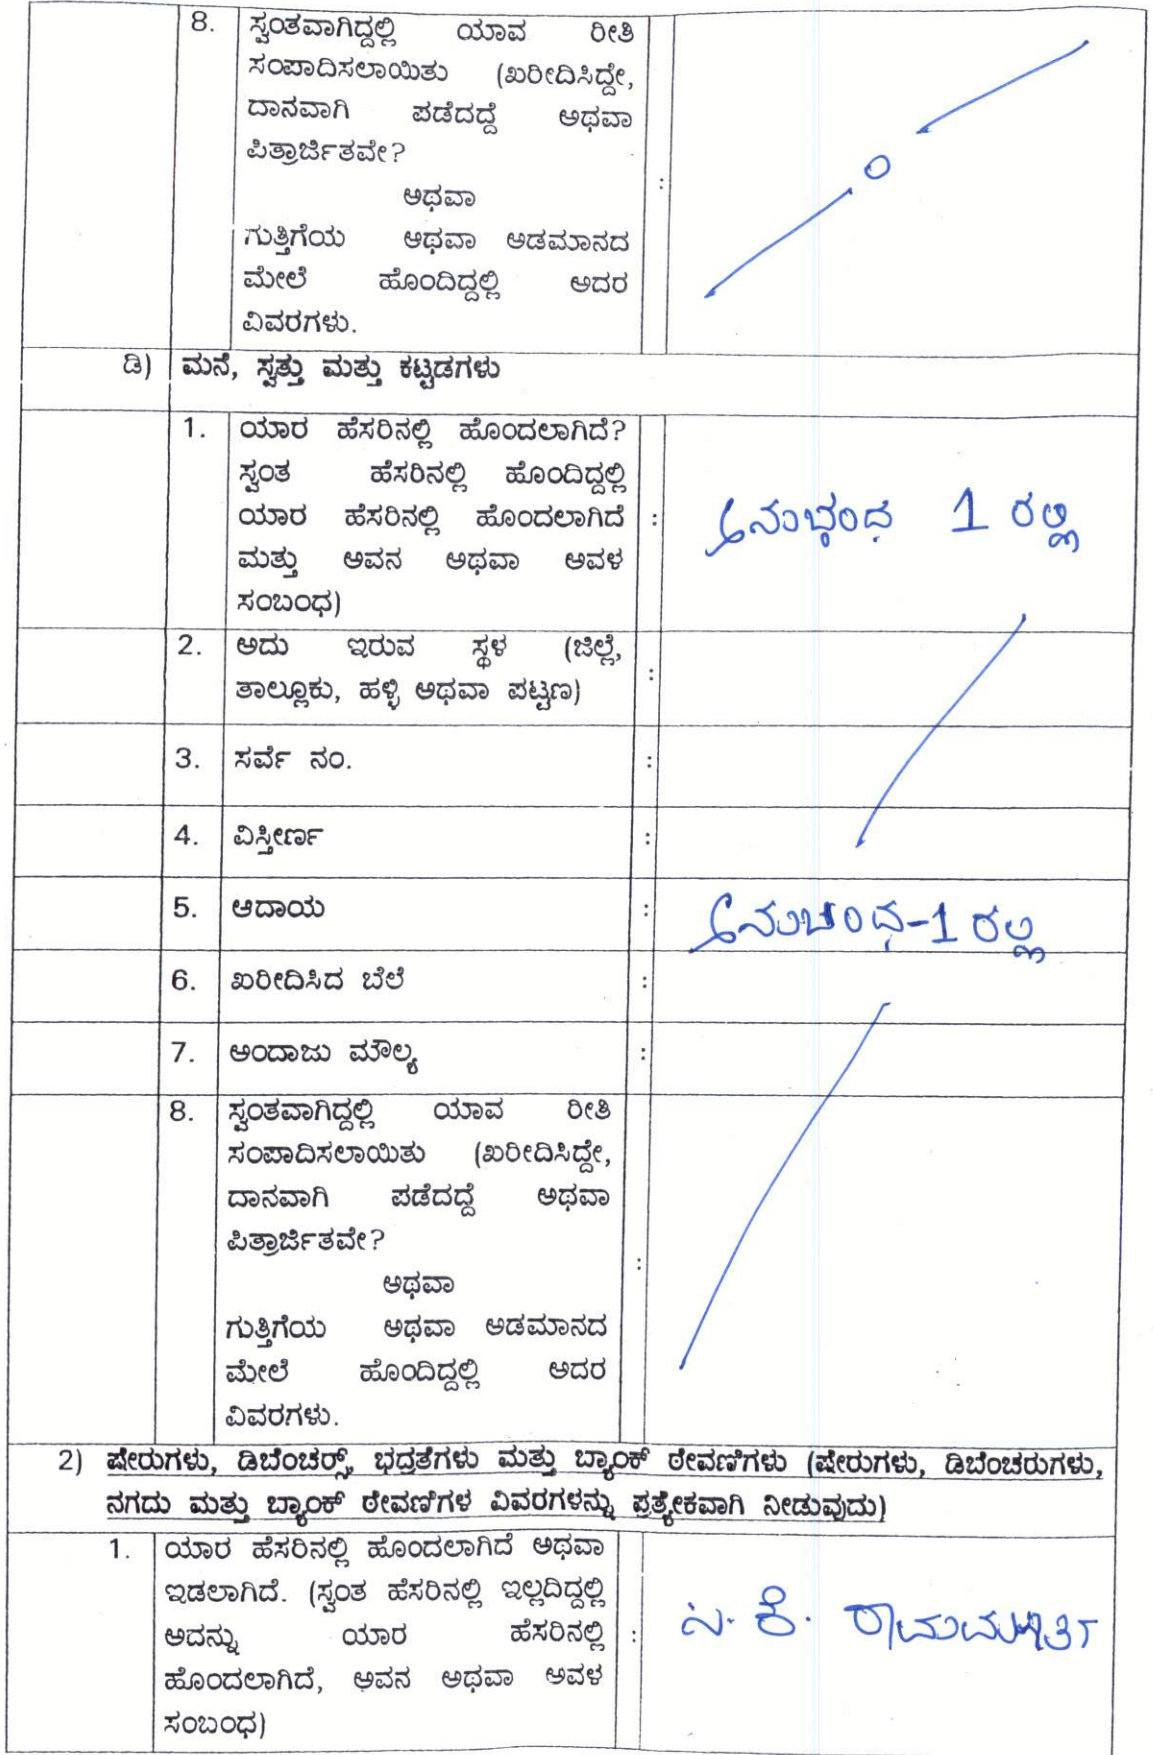 8. ಸ್ವಂತವಾಗಿದ್ದಲ್ಲಿ ಯಾವ ರೀತಿ
ಸಂಪಾದಿಸಲಾಯಿತು (ಖರೀದಿಸಿದ್ದೇ,
ದಾನವಾಗಿ ಪಡೆದದ್ದೆ ಅಥವಾ
ಪಿತ್ರಾರ್ಜಿತವೇ?
ಅಥವಾ :
ಗುತ್ತಿಗೆಯ ಅಥವಾ ಅಡಮಾನದ
ಮೇಲೆ ಹೊಂದಿದ್ದಲ್ಲಿ ಅದರ
ವಿವರಗಳು.
ಡಿ) ಮನೆ, ಸ್ವತ್ತು ಮತ್ತು ಕಟ್ಟಡಗಳು
1. ಯಾರ ಹೆಸರಿನಲ್ಲಿ ಹೊಂದಲಾಗಿದೆ?
ಸ್ವಂತ ಹೆಸರಿನಲ್ಲಿ ಹೊಂದಿದ್ದಲ್ಲಿ
ಯಾರ ಹೆಸರಿನಲ್ಲಿ ಹೊಂದಲಾಗಿದೆ : ಅನುಬಂಧ 1 ರಲ್ಲಿ
ಮತ್ತು ಅವನ ಅಥವಾ ಅವಳ
ಸಂಬಂಧ)
2. ಅದು ಇರುವ ಸ್ಥಳ (ಜಿಲ್ಲೆ,
ತಾಲ್ಲೂಕು, ಹಳ್ಳಿ ಅಥವಾ ಪಟ್ಟಣ) :
3. ಸರ್ವೆ ನಂ. :
4. ವಿಸ್ತೀರ್ಣ :
5. ಆದಾಯ : ಅನುಬಂಧ-1 ರಲ್ಲಿ
6. ಖರೀದಿಸಿದ ಬೆಲೆ :
7. ಅಂದಾಜು ಮೌಲ್ಯ :
8. ಸ್ವಂತವಾಗಿದ್ದಲ್ಲಿ ಯಾವ ರೀತಿ
ಸಂಪಾದಿಸಲಾಯಿತು (ಖರೀದಿಸಿದ್ದೇ,
ದಾನವಾಗಿ ಪಡೆದದ್ದೆ ಅಥವಾ
ಪಿತ್ರಾರ್ಜಿತವೇ? :
ಅಥವಾ
ಗುತ್ತಿಗೆಯ ಅಥವಾ ಅಡಮಾನದ
ಮೇಲೆ ಹೊಂದಿದ್ದಲ್ಲಿ ಅದರ
ವಿವರಗಳು.
2) ಷೇರುಗಳು, ಡಿಬೆಂಚರ್ಸ್, ಭದ್ರತೆಗಳು ಮತ್ತು ಬ್ಯಾಂಕ್ ಠೇವಣಿಗಳು (ಷೇರುಗಳು, ಡಿಬೆಂಚರುಗಳು,
ನಗದು ಮತ್ತು ಬ್ಯಾಂಕ್ ಠೇವಣಿಗಳ ವಿವರಗಳನ್ನು ಪ್ರತ್ಯೇಕವಾಗಿ ನೀಡುವುದು)
1. ಯಾರ ಹೆಸರಿನಲ್ಲಿ ಹೊಂದಲಾಗಿದೆ ಅಥವಾ
ಇಡಲಾಗಿದೆ. (ಸ್ವಂತ ಹೆಸರಿನಲ್ಲಿ ಇಲ್ಲದಿದ್ದಲ್ಲಿ
ಅದನ್ನು ಯಾರ ಹೆಸರಿನಲ್ಲಿ : ಕೆ. ರಾಮಮೂರ್ತಿ
ಹೊಂದಲಾಗಿದೆ, ಅವನ ಅಥವಾ ಅವಳ
ಸಂಬಂಧ)